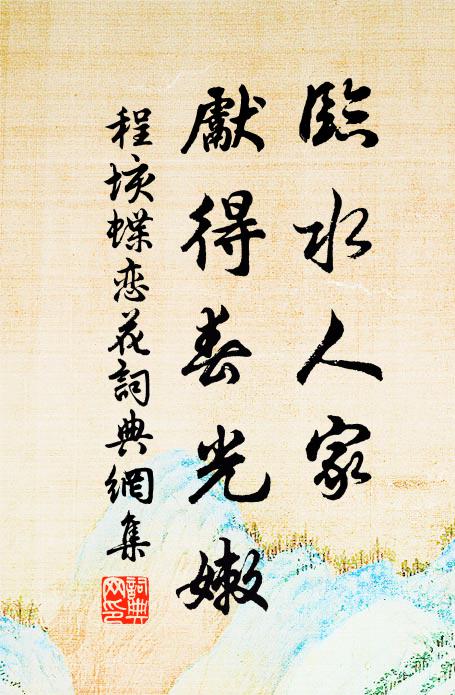 臨水人家
獻得春光嫩
程垓蝶恋花詞典網集
詞典网印